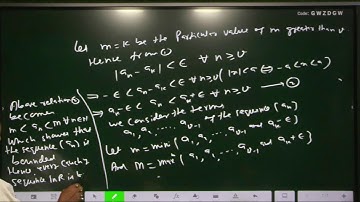 Code: GWZDGW
Let m=k be the Particular value of m greater than ν
Hence from ①
|aₙ - aₖ| < ε ∀ n ≥ ν
⇒ -ε < aₙ - aₖ < ε ∀ n ≥ ν (|x| < a ⇔ -a < x < a)
⇒ aₖ - ε < aₙ < aₖ + ε ∀ n ≥ ν — ②
we consider the terms
a₁, a₂, ... aᵥ₋₁ of the sequence {aₙ}
Let m = min {a₁, a₂, ... aᵥ₋₁ and aₖ - ε}
And M = max {a₁, a₂, ... aᵥ₋₁ and aₖ + ε}
Above relation ②
becomes
m < aₙ < M ∀ n ∈ N
Which shows that
the sequence {aₙ} is
bounded
Hence every Cauchy
sequence in R is b